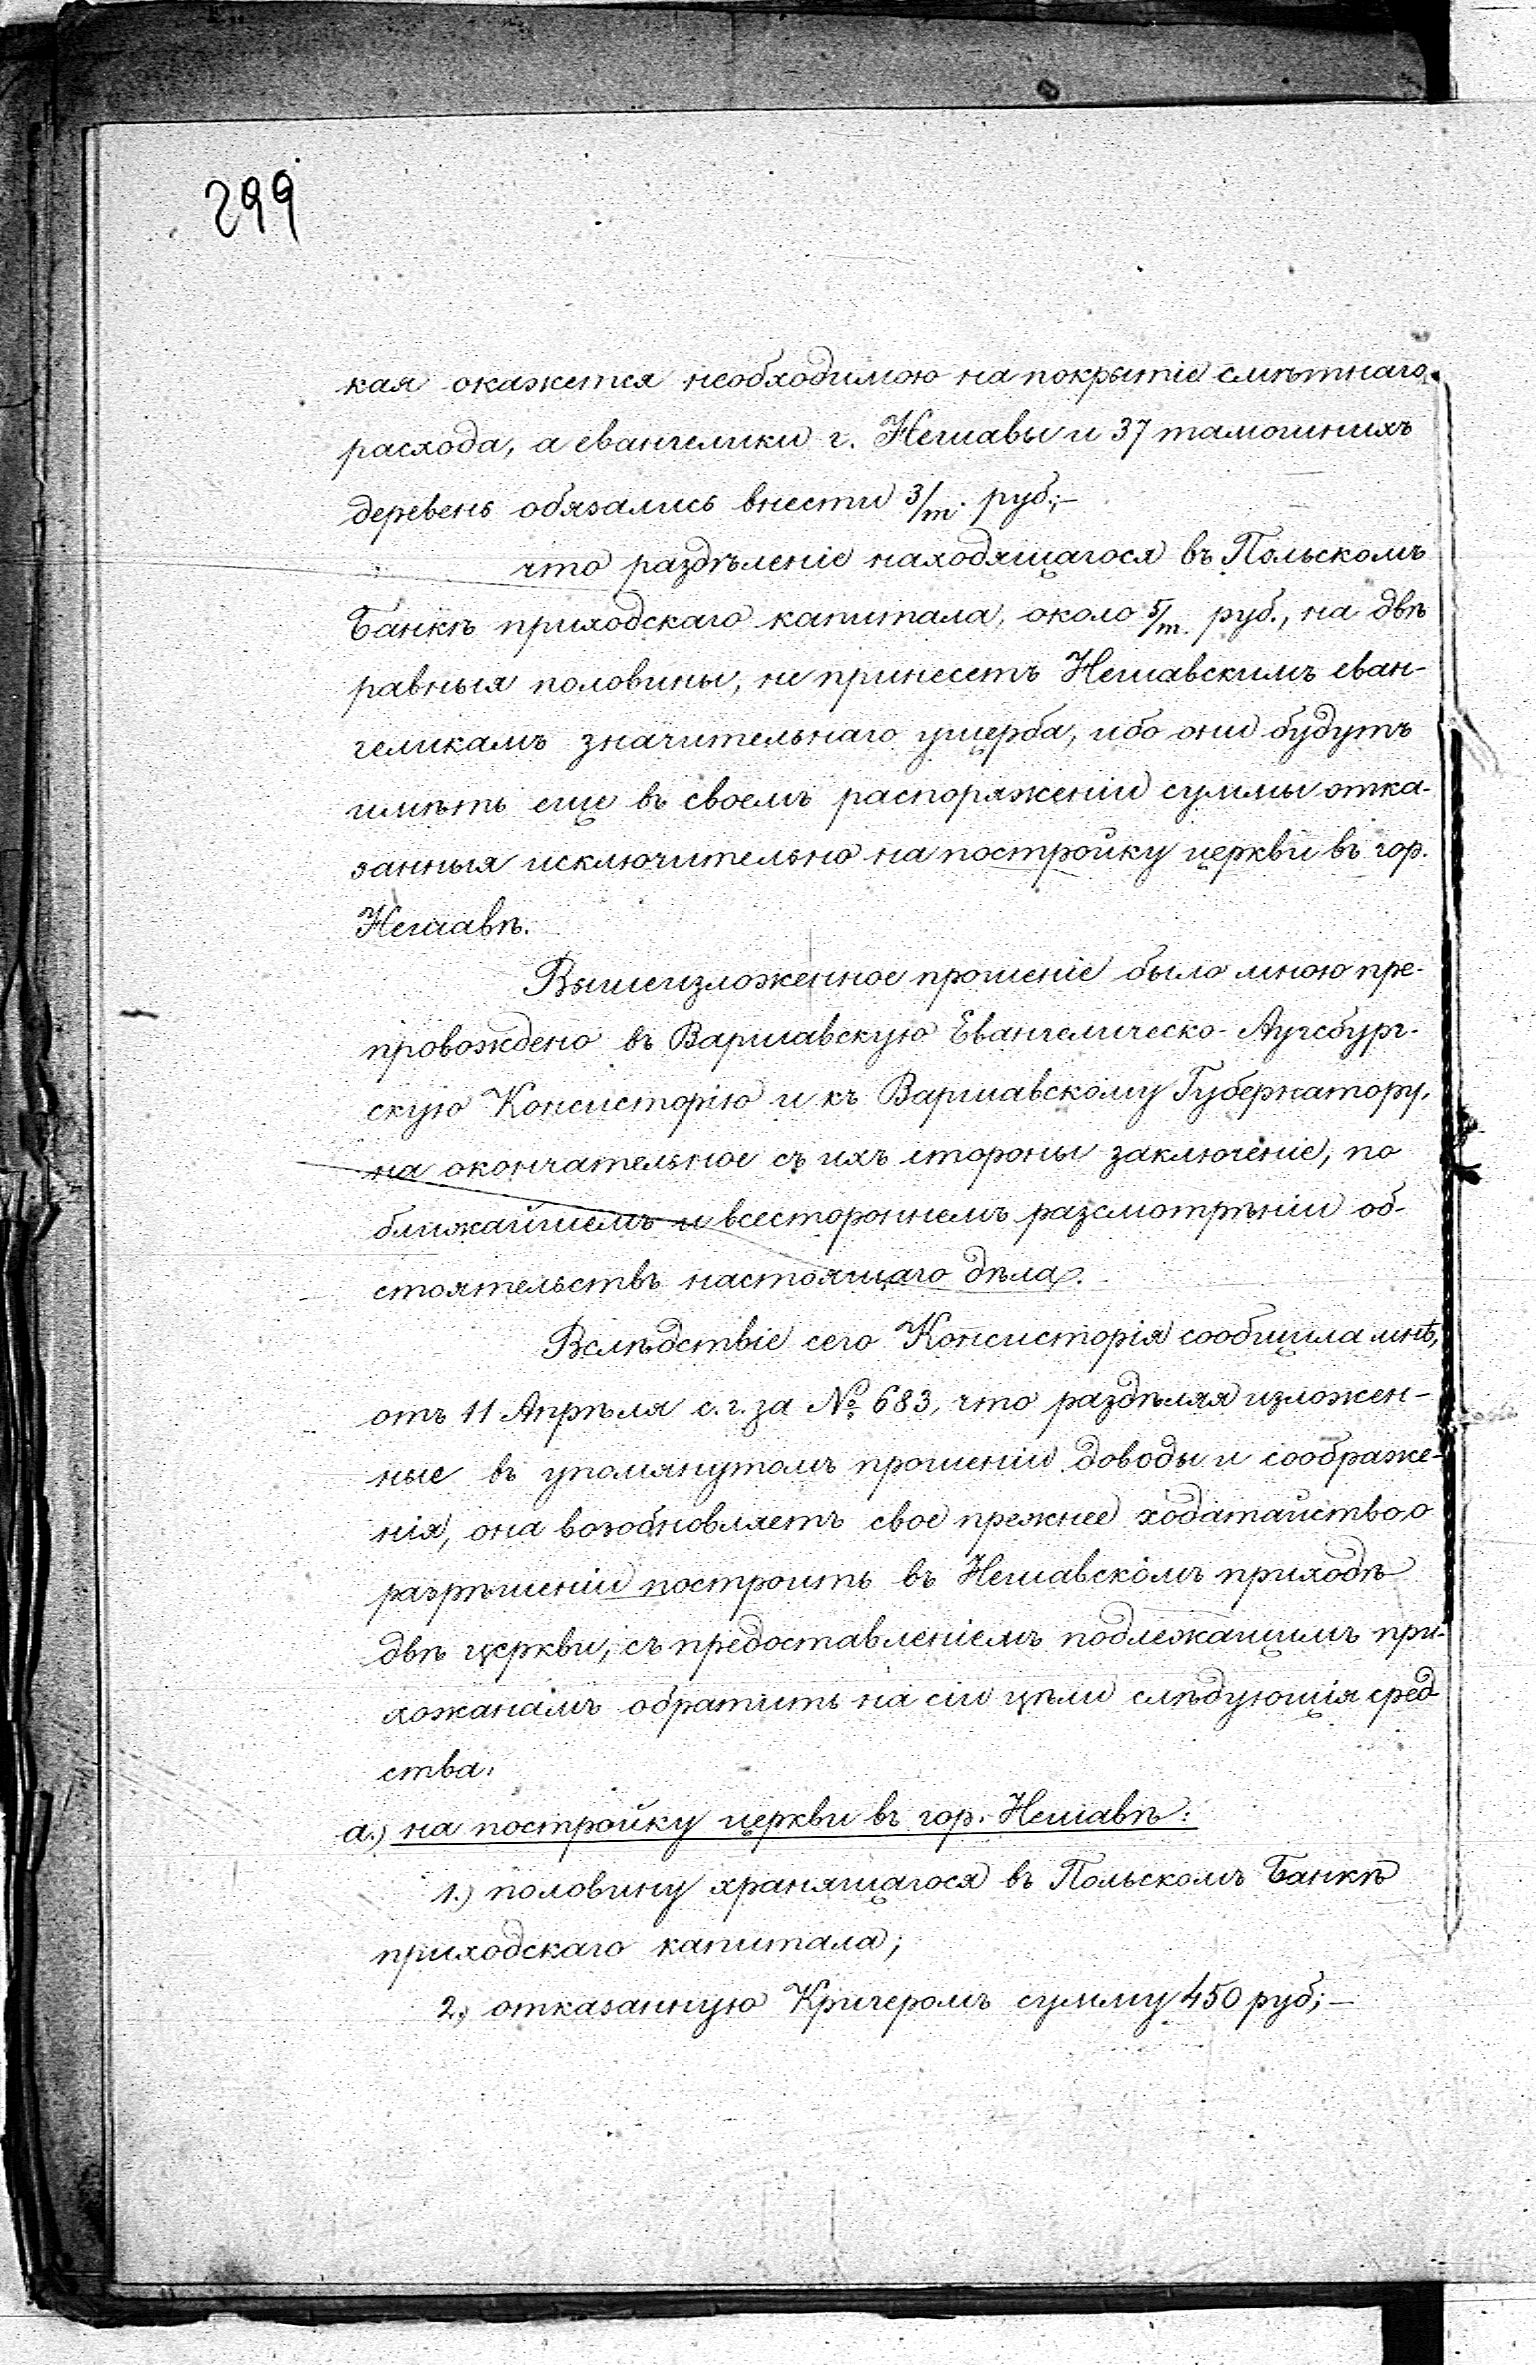 299
кая окажется необходимою на покрытіе смѣтнаго
расхода, а евангелики г. Нешавы и 37 тамошнихъ
деревень обязались внести 3/m. руб;—
что раздѣленіе находящагося въ Польскомъ
Банкѣ приходскаго капитала, около 5/m. руб., на двѣ
равныя половины, не принесетъ Нешавскимъ еван-
геликамъ значительнаго ущерба, ибо они будутъ
имѣть еще въ своемъ распоряженіи суммы отка-
занныя исключительно на постройку церкви въ гор.
Нешавѣ.
Вышеизложенное прошеніе было мною пре-
провождено въ Варшавскую Евангелическо-Аугсбург-
скую Консисторію и къ Варшавскому Губернатору,
на окончательное съ ихъ стороны заключеніе, по
ближайшемъ и всестороннемъ разсмотрѣніи об-
стоятельствъ настоящаго дѣла.
Вслѣдствіе сего Консисторія сообщила мнѣ,
отъ 11 Апрѣля с. г. за № 683, что раздѣляя изложен-
ные въ упомянутомъ прошеніи доводы и соображе-
нія, она возобновляетъ свое прежнее ходатайство о
разрѣшеніи построить въ Нешавскомъ приходѣ
двѣ церкви, съ предоставленіемъ подлежащимъ при-
хожанамъ обратить на сіи цѣли слѣдующія сред
ства:
а.) на постройку церкви въ гор. Нешавѣ:
1.) половину хранящагося въ Польскомъ Банкѣ
приходскаго капитала;
2.) отказанную Кричеромъ сумму 450 руб;—